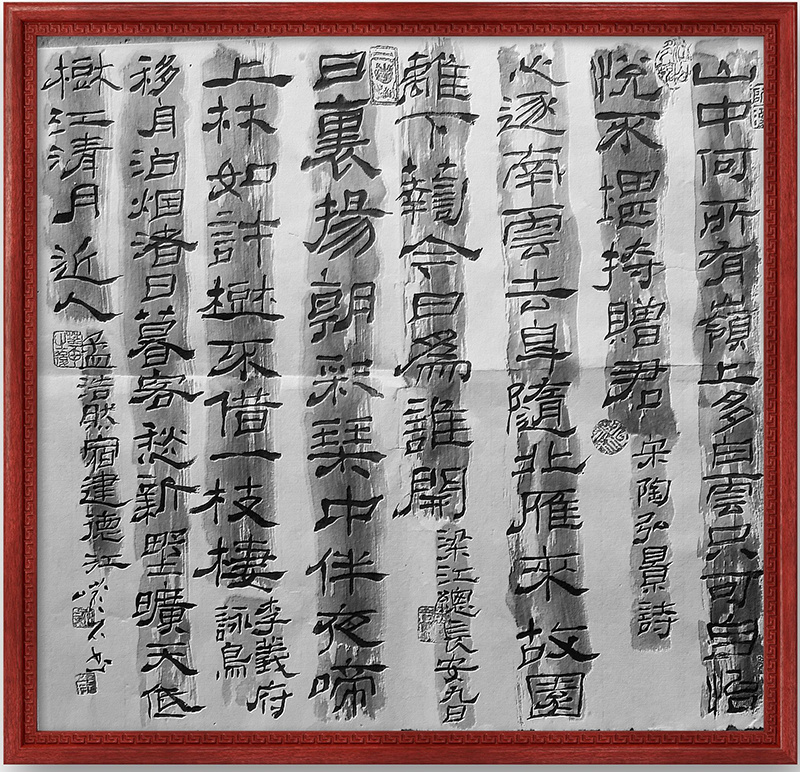 山中何所有嶺上多白雲只可自怡
悅不堪持贈君 宋陶弘景詩
心逐南雲去身隨北雁來故園
離下菊今日爲誰開 梁江總長安九日
日裏揚朝彩琴中伴夜啼
上林如許樹不借一枝棲 李義府詠烏
移舟泊烟渚日暮客愁新野曠天低
樹江清月近人 孟浩然宿建德江